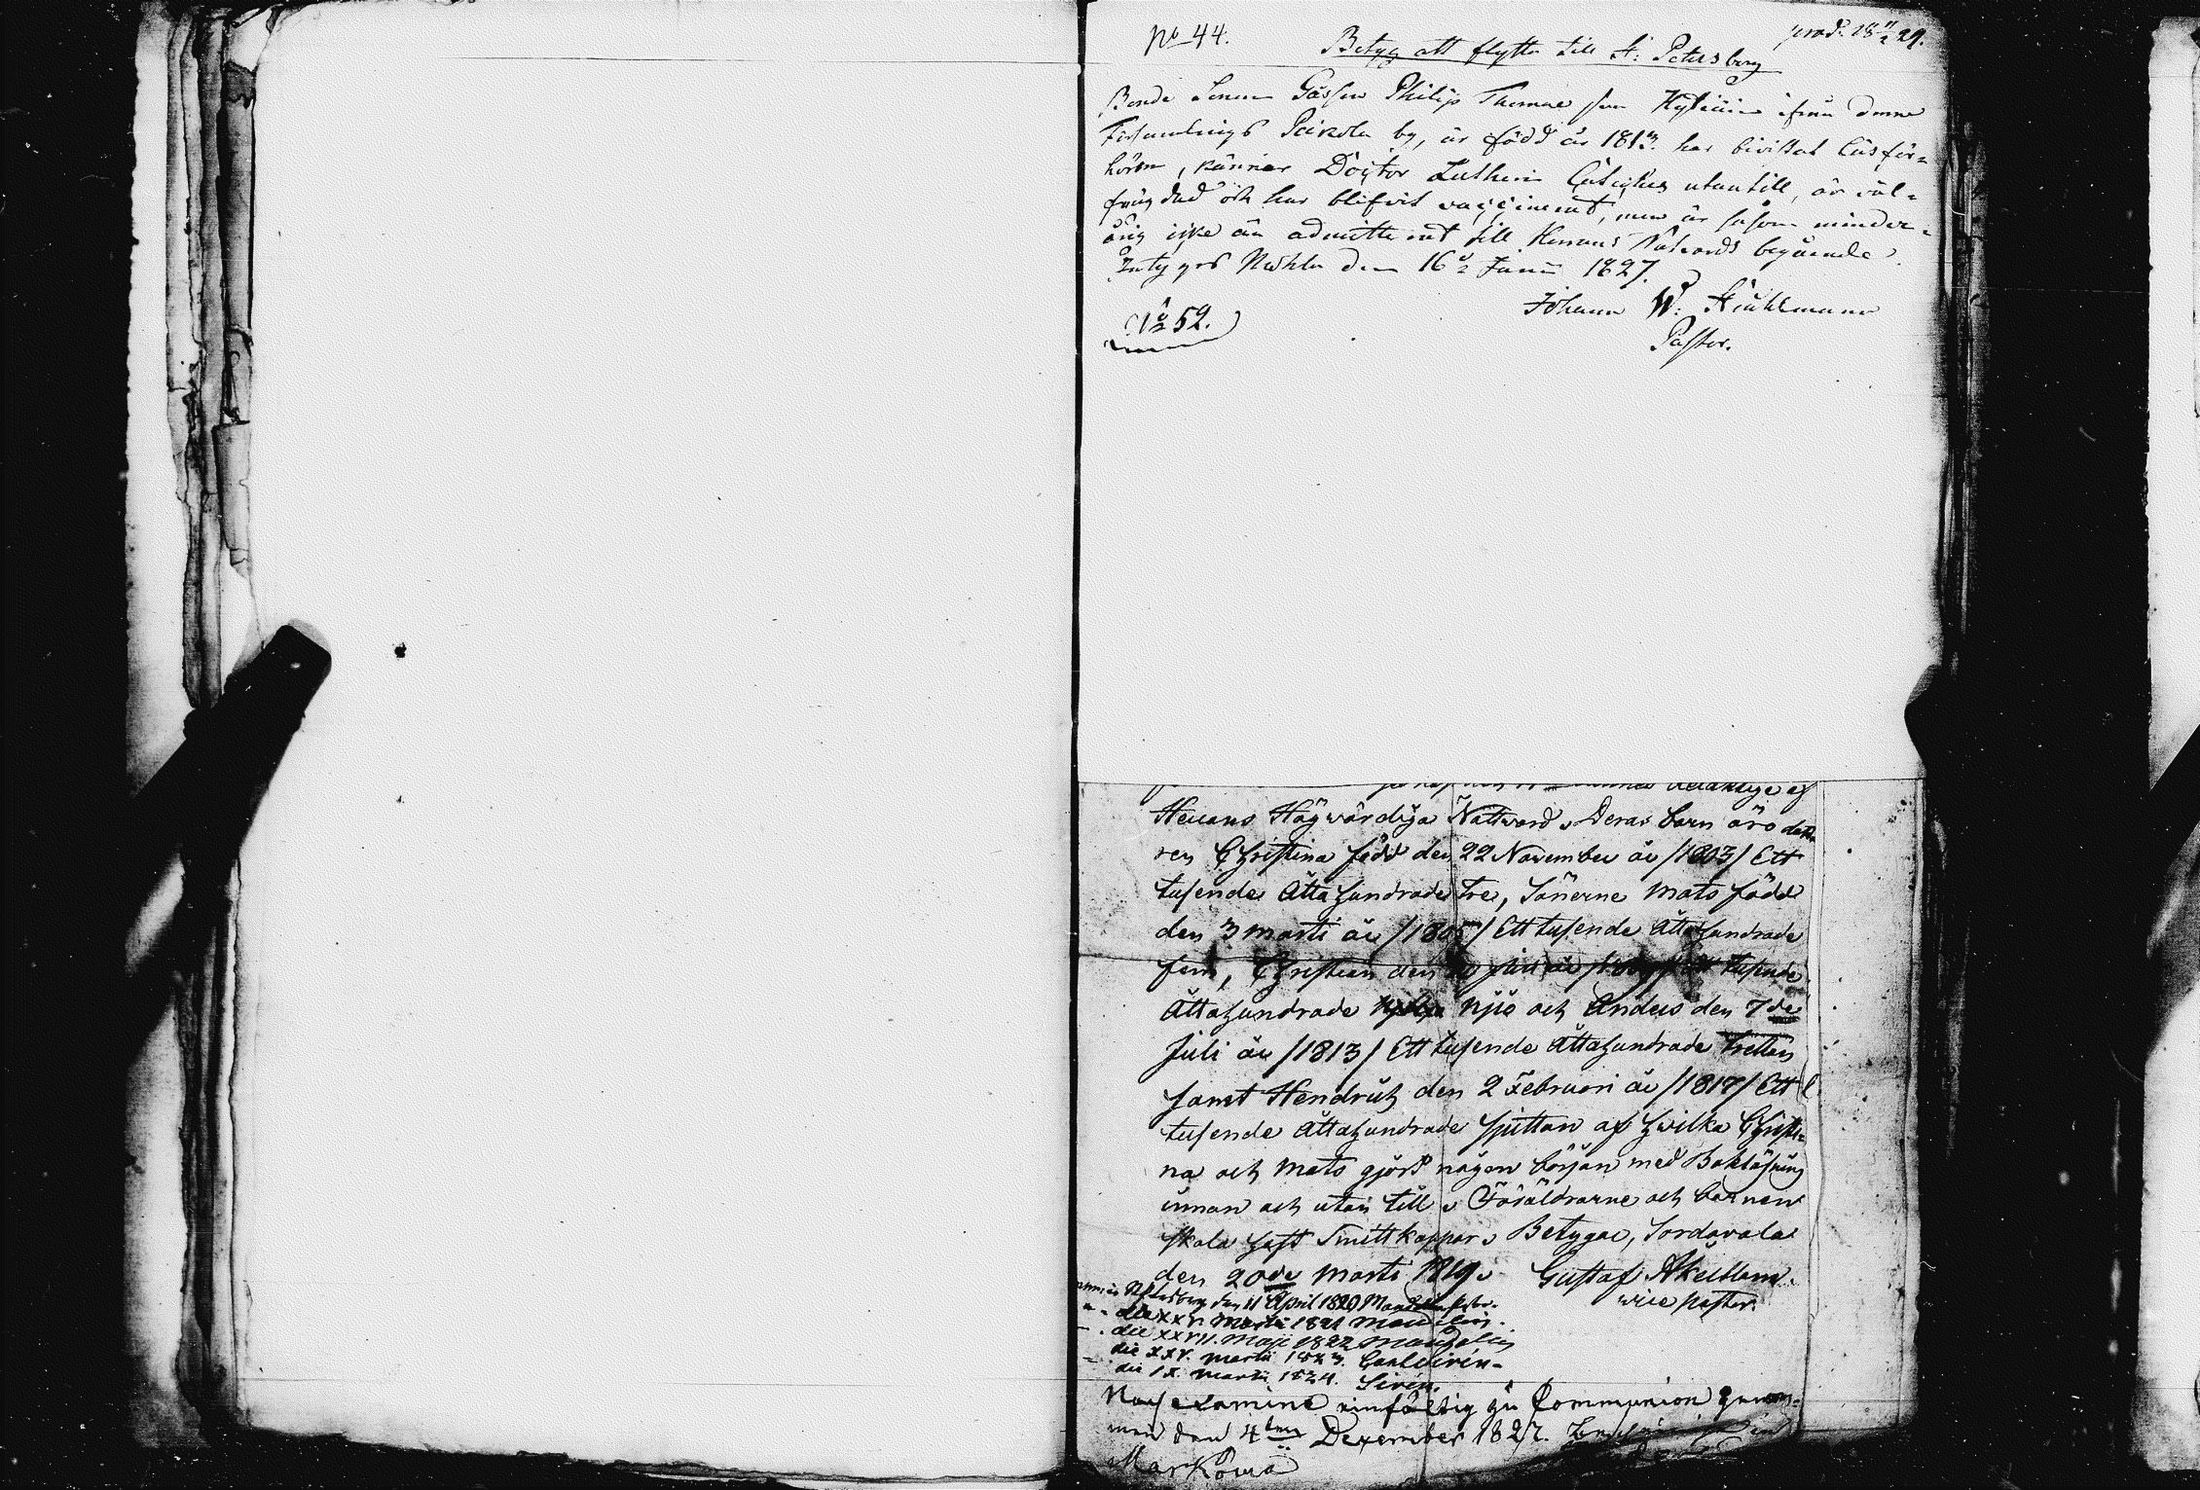 No 44.
prod. 18 11/2 29.
Betyg att flytta till St: Petersburg
Bonde Sonen Gåssen Philip Thomae son Hytiäin ifrån denne
Församlings Peikola by, är född år 1813. har bivistat Läsför-
hören, känner Doctor Lutheri Catiches utantill, är väl-
frägdad och har blifvit vaccinerat, men är såsom minder-
årig icke än admitterat till Herrans Nattvards begående.
Intygas den 16 Junii 1827.
Johann W:
Pastor.
No 52.
delaktige af
Herrans Högwördiga Nattward. Deras barn äro dott-
ren Christina född den 22 November år /1803/ Ett
tusende Åttahundrade Tre, Sönerne Mats född
den 3 Marti år /1805/ Ett tusende Åttahundrade
fem, Christian den tusende
Åttahundrade Nijo och Anders den 7de
Juli år /1813/ Ett tusende Åttahundrade Tretten
samt Hendrich den 2 Februari år /1817/ Ett
tusende Åttahundrade Sjuttan af hwilka Christi-
na och Mats gjort någon början med Bokläsning
innan och utan till. Föräldrarne och barnen
skola haft Smittkoppor. Betygar, Sordavala
den 20de Marti 1819. Gustaf
vice pastor.
den 11 April 1820
die XXV. Martii 1821
die XXVII. Maji 1822
die XXV. Martii 1823. Carl Sirén
die IX. Martii 1824. Sirén.
Nach examine einfältig zu Communion genom-
men den 4ten Dezember 1827.
Markowa